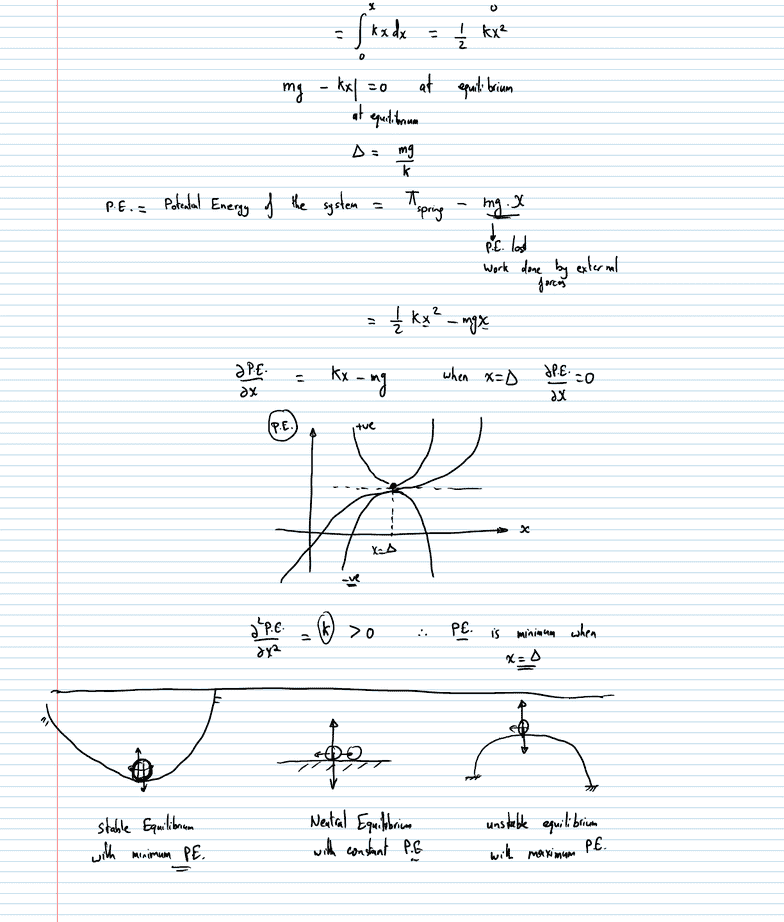 x 0
= ∫ kx dx = 1/2 kx²
0
mg - kx| = 0 at equilibrium
at equilibrium
Δ = mg/k
P.E. = Potential Energy of the system = π spring - mg.x
P.E. lost
work done by external
forces
= 1/2 kx² - mgx
∂P.E./∂x = kx - mg when x=Δ ∂P.E./∂x = 0
P.E. +ve
x
x=Δ
-ve
∂²P.E./∂x² = k > 0 ∴ P.E. is minimum when
x = Δ
Stable Equilibrium Neutral Equilibrium unstable equilibrium
with minimum P.E. with constant P.E with maximum P.E.